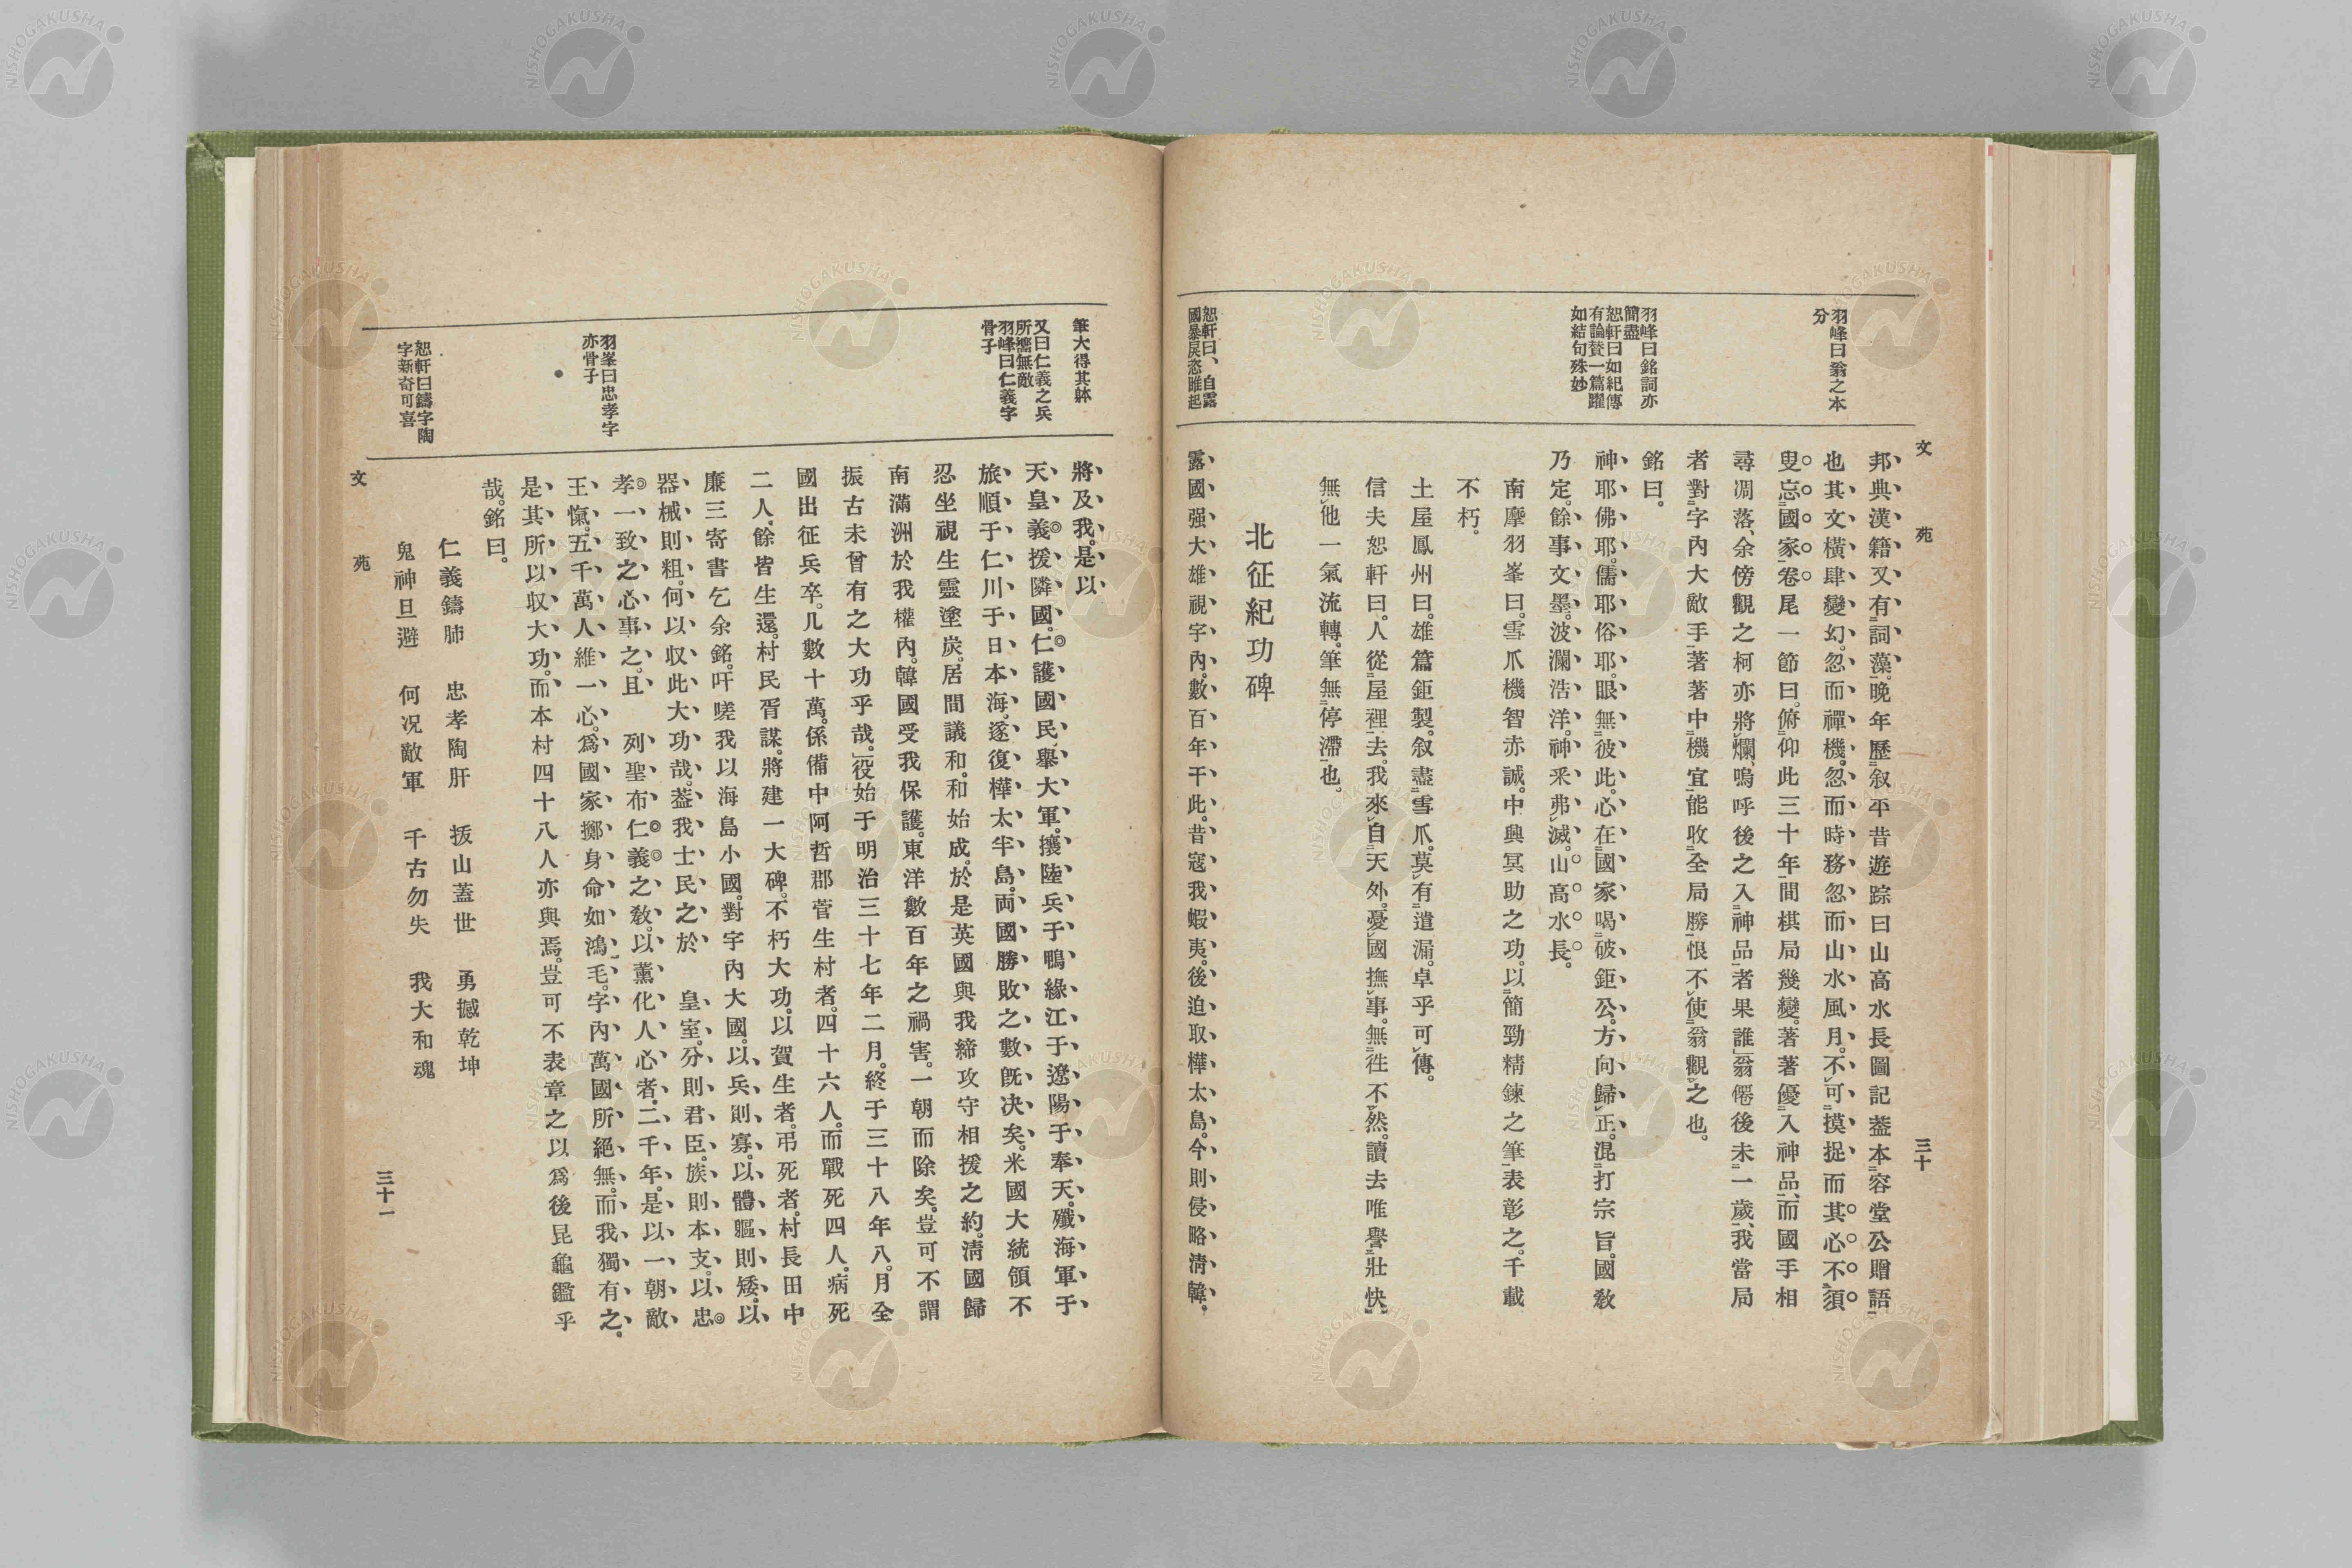 文 苑
三十
羽峰曰翁之本
分
羽峰曰銘詞亦
簡盡
恕軒曰如紀傳
有論賛一篇躍
如結句殊妙
恕軒曰、自露
國暴戻恣睢起
邦典漢籍又有詞藻。晩年歴叙平昔遊踪曰山高水長圖記葢本容堂公贈語
也其文橫肆變幻。忽而禪機。忽而時務忽而山水風月。不可摸捉而其心不須
叟忘國家卷尾一節曰。俯仰此三十年間棋局幾變。著著優入神品、而國手相
尋凋落、余傍觀之柯亦將爛、嗚呼後之入神品者果誰翁僊後未一歲、我當局
者對字內大敵手著著中機宜能收全局勝恨不使翁觀之也。
銘曰。
神耶佛耶。儒耶俗耶。眼無彼此。心在國家喝破鉅公。方向歸正。混打宗旨。國敎
乃定。餘事文墨。波瀾浩洋。神釆弗滅。山高水長。
南摩羽峯曰。雪爪機智赤誠。中興冥助之功。以簡勁精鍊之筆表彰之。千載
不朽。
土屋鳳州曰。雄篇鉅製。叙盡雪爪。莫有遣漏。卓乎可傳。
信夫恕軒曰。人從屋裡去。我來自天外。憂國撫事。無徃不然。讀去唯譽壯快。
無他一氣流轉。筆無停滯也。
北征紀功碑
露國强大雄視宇內。數百年于此。昔寇我蝦夷。後迫取樺太島。今則侵略淸韓。
筆大得其躰
又曰仁義之兵
所嚮無敵
羽峰曰仁義字
骨子
羽峯曰忠孝字
亦骨子
恕軒曰鑄字陶
字新奇可喜
將及我。是以
天皇義援隣國。仁護國民、擧大軍。攘陸兵于鴨緣江于遼陽于奉天。殲海軍于
旅順于仁川于日本海。遂復樺太半島。両國勝敗之數旣决矣。米國大統領不
忍坐視生靈塗炭。居間議和。和始成。於是英國與我締攻守相援之約。淸國歸
南滿洲於我權內。韓國受我保護。東洋數百年之禍害。一朝而除矣。豈可不謂
振古未曾有之大功乎哉。役始于明治三十七年二月。終于三十八年八。月全
國出征兵卒。几數十萬。係備中阿哲郡菅生村者。四十六人。而戰死四人。病死
二人、餘皆生還。村民胥謀。將建一大碑。不朽大功。以賀生者。弔死者。村長田中
廉三寄書乞余銘。吁嗟我以海島小國。對宇內大國。以兵則寡。以體軀則矮。以
器械則粗。何以収此大功哉。葢我士民之於 皇室。分則君臣。族則本支。以忠
孝一致之心事之。且 列聖布仁義之敎。以薰化人心者。二千年。是以一朝敵
王愾。五千萬人維一心。爲國家擲身命如鴻毛。宇內萬國所絕無。而我獨有之。
是其所以収大功。而本村四十八人亦與焉。豈可不表章之以爲後昆龜鑑乎
哉。銘曰。
仁義鑄肺 忠孝陶肝 拔山蓋世 勇撼乾坤
鬼神旦避 何况敵軍 千古勿失 我大和魂
文 苑
三十一